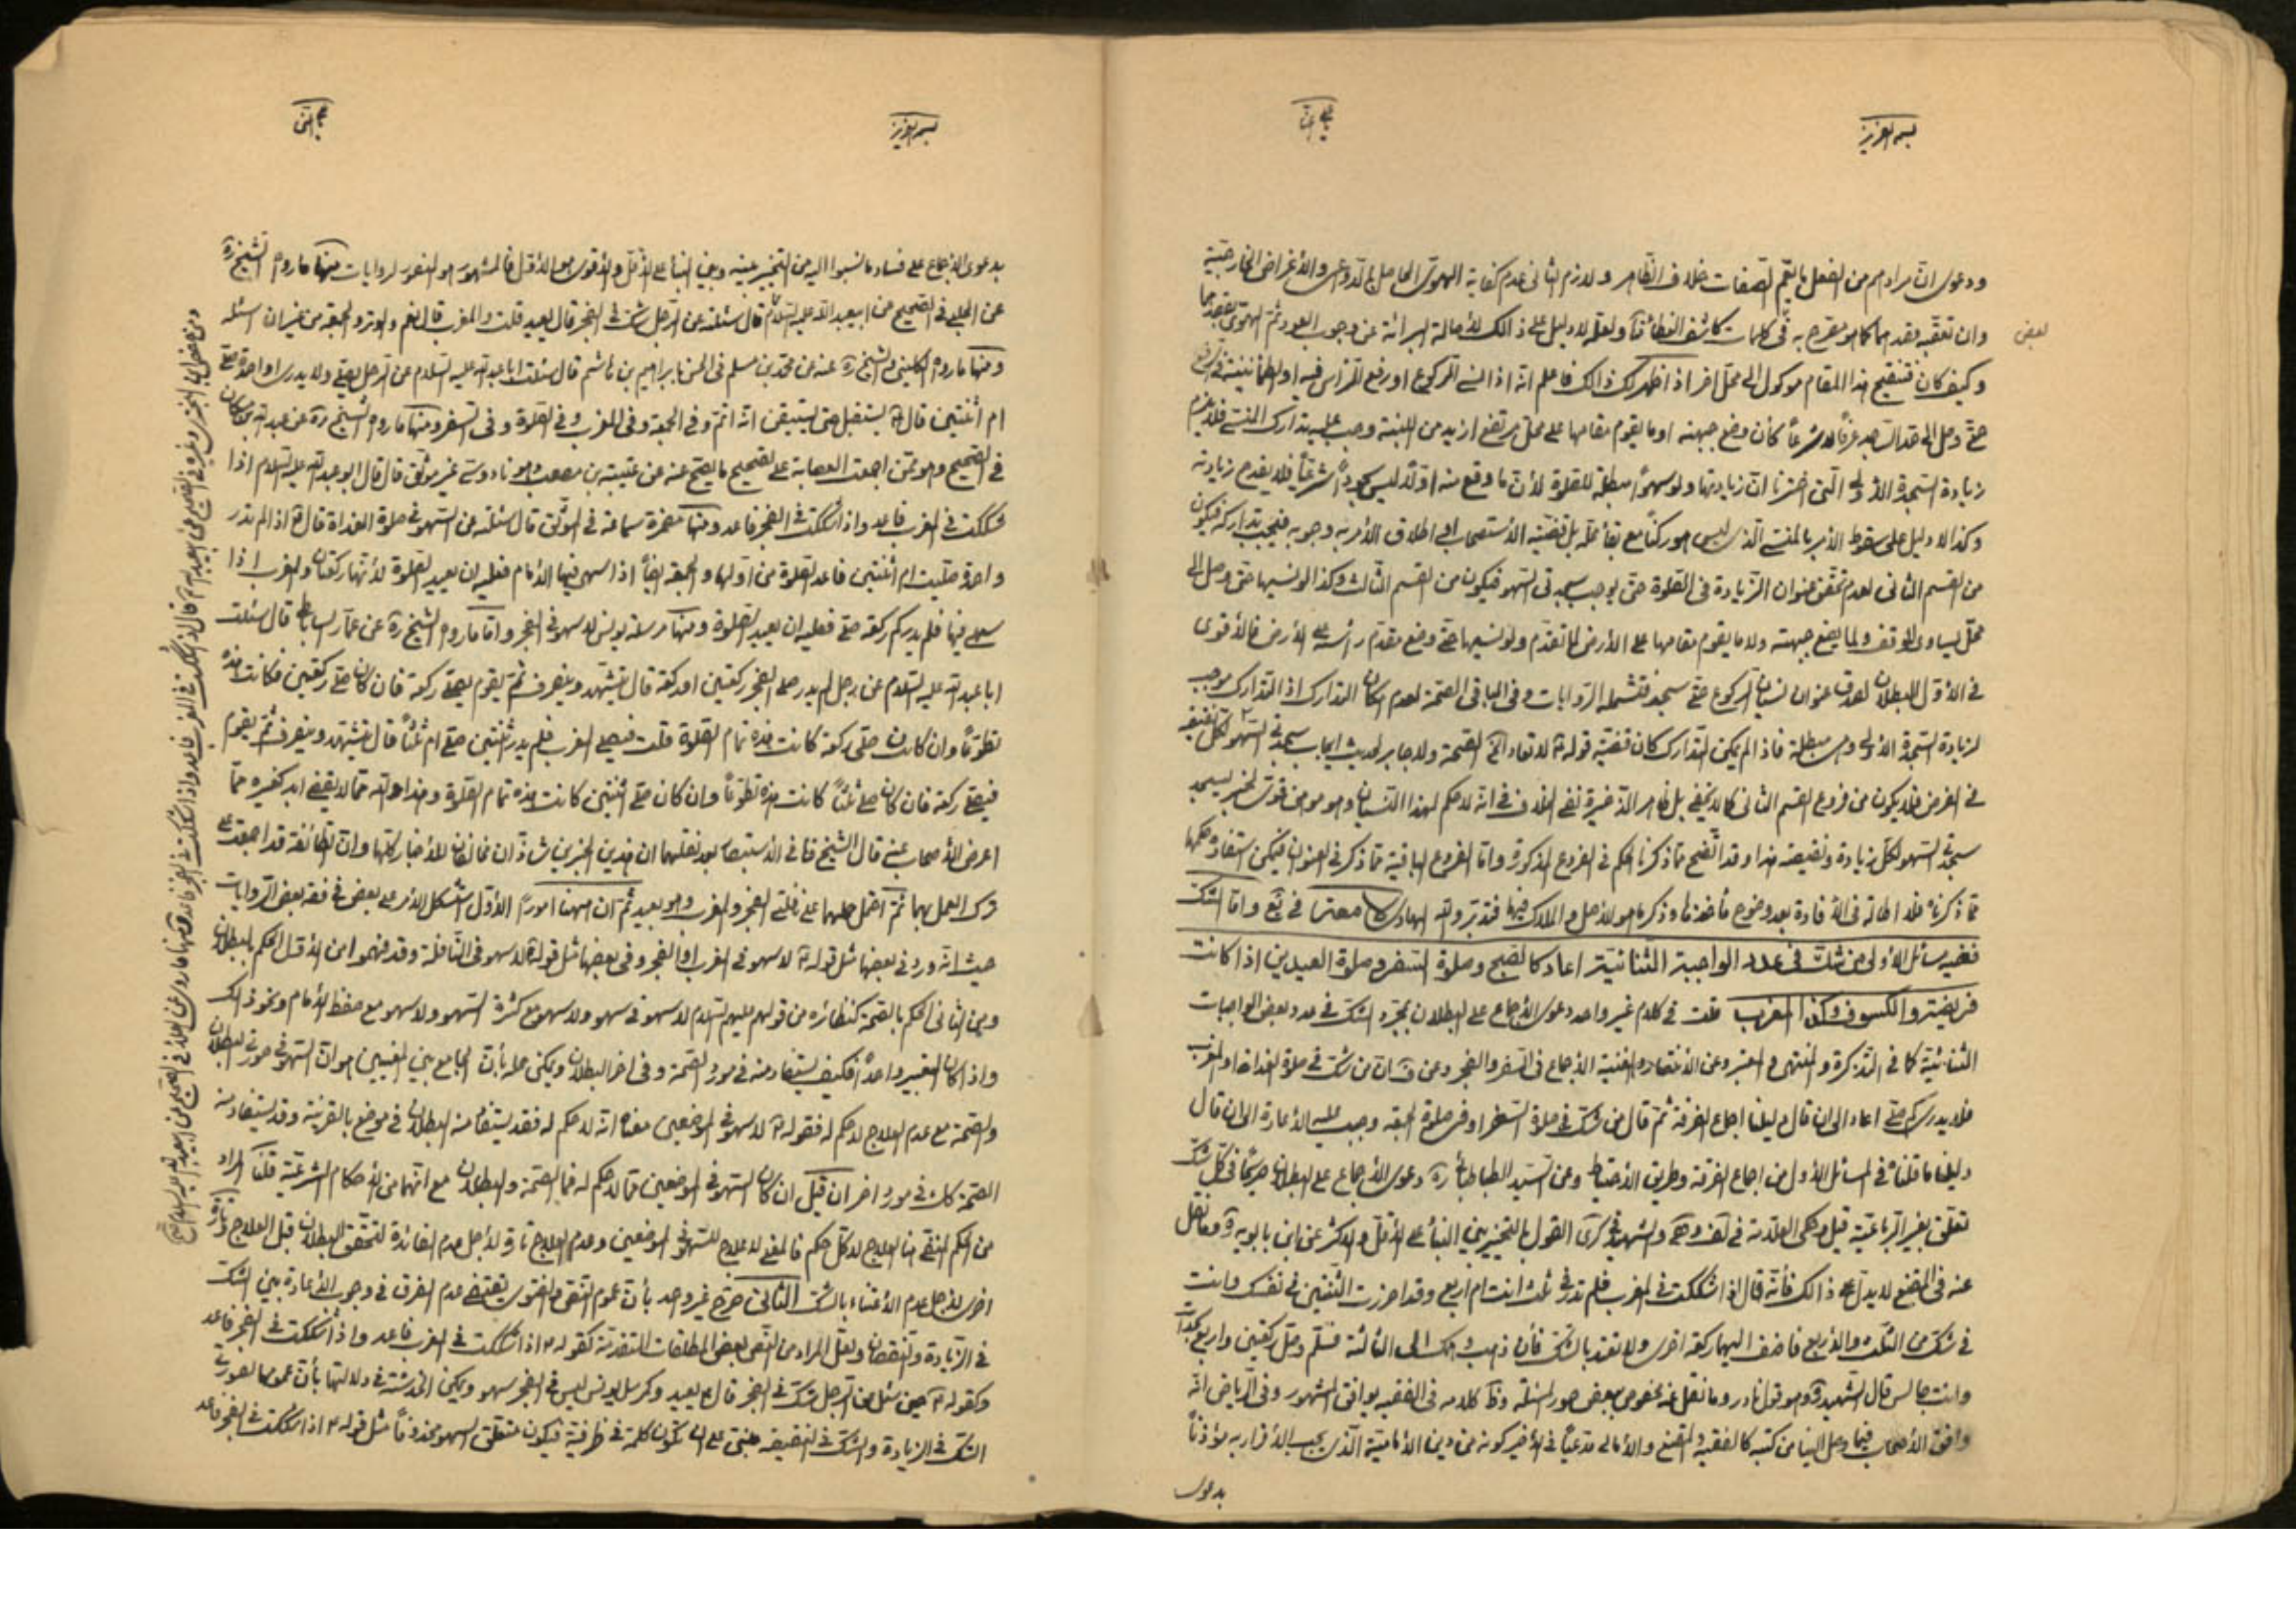 بسم العزيز
ودعوى ان مرادهم من الفعل ما يعم الصفات خلاف الظاهر ولازم الثاني عدم كفاية الهوى الحاصل بالدواعي والأغراض الخارجية
وان تعقبه بقصدهما كما هو مصرح به في كلمات كاشف الغطاء ولعله لا دليل على ذالك لأصالة البرائة عن وجوب العود ثم الهوى بقصدهما
لبعض
وكيف كان فتنقيح هذا المقام موكول الى محل اخر اذا ظهر لك ذالك فاعلم انه اذا نسي الركوع او رفع الرأس فيه او الطمأنينة في الرفع
حتى وصل الى حد الساجد عرفاً لا شرعاً كأن وضع جبهته او ما يقوم مقامها على محل مرتفع ازيد من اللبنة وجب عليه تدارك المنسي فلا يلزم
زيادة السجدة الأولى التي اخترنا ان زيادتها ولو سهواً مبطلة للصلوة لأن ما وقع منه اولاً ليس سجوداً شرعياً فلا يقدح زيادته
وكذا لا دليل على سقوط الأمر بالمنسي الذي ليس هو ركناً مع بقاء محله بل قضية الأستصحاب او اطلاق الأمر به وجوبه فيجب تداركه فيكون
من القسم الثاني لعدم تحقق عنوان الزيادة في الصلوة حتى يوجب سجدتي السهو فيكون من القسم الثالث وكذا لو نسيها حتى وصل الى
محل يساوى الموقف ولما يضع جبهته ولا ما يقوم مقامها على الأرض لما تقدم ولو نسيها حتى وضع مقدم رأسه على الأرض فالأقوى
في الأول البطلان لصدق عنوان نسيان الركوع حتى سجد فتشمله الروايات وفي الباقي الصحة لعدم امكان التدارك اذ التدارك موجب
لزيادة السجدة الأولى وهي مبطلة فاذا لم يمكن التدارك كان قضية قوله لا تعاد الخ الصحة ولا جابر لحديث ايجاب سجدتي السهو لكل نقيصة
في الفرض فلا يكون من فروع القسم الثاني كما لا يخفى بل ظاهر الذخيرة نفي الخلاف في انه لا حكم لهذا النسيان وهو موهن قوى لخبر يسجد
سجدتي السهو لكل زيادة ونقيصة هذا وقد اتضح مما ذكرنا الحكم في الفروع المذكورة واما الفروع الباقية مما ذكر في العنوان فيمكن استفادة حكمها
مما ذكرناه فلا اطالة في الأفادة بعد وضوح مأخذها وذكر ما هو الأصل والملاك فيها فتدبر والله الهادى واما الشك
ففيه مسائل الأولى من شك في عدد الواجبة الثنائية اعاد كالصبح وصلوة السفر وصلوة العيدين اذا كانت
فريضة والكسوف وكذا المغرب قلت في كلام غير واحد دعوى الأجماع على البطلان بمجرد الشك في عدد بعض الواجبات
الثنائية كما في التذكرة والمنتهى والمعتبر وعن الأنتصار والغنية الأجماع في السفر والفجر وعن ف ان من شك في صلوة الغداة او المغرب
فلا يدرى كم صلى اعاد الى ان قال دليلنا اجماع الفرقة ثم قال من شك في صلوة السفر او في صلوة الجمعة وجب عليه الأعادة الى ان قال
دليلنا ما قلناه في المسائل الأول من اجماع الفرقة وطريق الأحتياط وعن السيد الطباطبائي ره دعوى الأجماع على البطلان صريحاً في كل شك
تعلق بغير الرباعية قيل وحكى العلامة في القول بالتخيير بين البناء على الأقل والأكثر عن ابن بابويه وما نقل
عنه في المقنع لا يدل على ذالك فأنه قال اذا شككت في المغرب فلم تدر في ثلث انت ام اربع وقد احرزت الثنتين في نفسك وانت
في شك من الثلث والأربع فاضف اليها ركعة اخرى ولا تعتد بالشك فأن ذهب وهمك الى الثالثة فسلم وصل ركعتين واربع سجدات
وانت جالس قال الشهيد وهو قول نادر وما نقل عنه مخصوص ببعض صور المسئلة وظ كلامه في الفقيه يوافق المشهور وفي الرياض انه
وافق الأصحاب فيما وصل الينا من كتبه كالفقيه والمقنع والأمالي مدعياً في الأخير كونه من دين الأمامية الذي يجب الأقرار به مؤذناً
بدعوى
بسم العزيز
بدعوى الأجماع على فساد ما نسبوا اليه من التخيير بينه وبين البناء على الأقل والأقوى هو الأول فالمشهور هو المنصور لروايات منها ما رواه الشيخ ره
عن الحلبي في الصحيح عن ابيعبد الله عليه السلام قال سئلته عن الرجل شك في الفجر قال يعيد قلت والمغرب قال نعم والوتر والجمعة من غير ان اسئله
ومنها ما رواه الكليني والشيخ ره عنه عن محمد بن مسلم في الحسن بابراهيم بن هاشم قال سئلت ابا عبد الله عليه السلام عن الرجل يصلى ولا يدرى اواحدة صلى
ام اثنتين قال يستقبل حتى يستيقن انه اتم وفي الجمعة وفي المغرب وفي الصلوة في السفر ومنها ما رواه الشيخ ره عن عبد الله بن مسكان
في الصحيح وهو ممن اجمعت العصابة على تصحيح ما يصح عنه عن عنبسة بن مصعب وهو ناووسى غير موثق قال قال ابو عبد الله عليه السلام اذا
شككت في المغرب فاعد واذا شككت في الفجر فاعد ومنها مضمرة سماعة في الموثق قال سئلته عن السهو في صلوة الغداة قال اذا لم تدر
واحدة صليت ام اثنتين فاعد الصلوة من اولها والجمعة ايضاً اذا سهى فيها الأمام فعليه ان يعيد الصلوة لأنها ركعتان والمغرب اذا
سهى فيها فلم يدر كم ركعة صلى فعليه ان يعيد الصلوة ومنها مرسلة يونس لا سهو في الفجر واما ما رواه الشيخ ره عن عمار الساباطي قال سئلت
ابا عبد الله عليه السلام عن رجل لم يدر صلى الفجر ركعتين او ركعة قال يتشهد وينصرف ثم يقوم يصلى ركعة فان كان صلى ركعتين فكانت هذه
تطوعاً وان كان صلى ركعة كانت هذه تمام الصلوة قلت فيصلى المغرب فلم يدر اثنتين صلى ام ثلثاً قال يتشهد وينصرف ثم يقوم
فيصلى ركعة فان كان صلى ثلثاً كانت هذه تطوعاً وان كان صلى اثنتين كانت هذه تمام الصلوة وهذا والله مما لا يقضى ابد كغيره مما
اعرض الأصحاب عنه قال الشيخ فا في الأستبصار بعد نقلهما ان هذين الخبرين شاذان مخالفان للأخبار كلها وان الطائفة قد اجمعت على
ترك العمل بهما ثم احتمل حملهما على نافلتى الفجر والمغرب وهو بعيد ثم ان هيهنا امور الأول استشكل الأمر على بعض في فقه بعض الروايات
حيث انه ورد في بعضها مثل قوله لا سهو في المغرب او الفجر وفي بعضها مثل قوله لا سهو في النافلة وقد فهموا من الأول الحكم بالبطلان
ومن الثاني الحكم بالصحة كنظائره من قولهم عليهم السلام لا سهو في سهو ولا سهو مع كثرة السهو ولا سهو مع حفظ الأمام ونحو ذالك
واذا كان التعبير واحداً فكيف يستفاد منه في مورد الصحة وفي اخر البطلان ويمكن حله بأن الجامع بين المعنيين هو ان السهو في صورتي البطلان
والصحة مع عدم العلاج لا حكم له فقوله لا سهو في الموضعين معناه انه لا حكم له فقد يستفاد منه البطلان في موضع بالقرينة وقد يستفاد منه
الصحة كك في مورد اخر ان قيل ان كان السهو في الموضعين مما لا حكم له فما الصحة والبطلان مع انهما من الأحكام الشرعية قلنا المراد
من الحكم المنفى هنا العلاج لا كل حكم فالمعنى لا علاج للسهو في الموضعين وعدم العلاج تارة لأجل عدم الفائدة لتحقق البطلان قبل العلاج وتارة
اخرى لأجل عدم الأعتناء بالشك الثاني صرح غير واحد بأن عموم النص والفتوى يقتضى عدم الفرق في وجوب الأعادة بين الشك
في الزيادة والنقصان ولعل المراد من النص بعض المطلقات المتقدمة كقوله اذا شككت في المغرب فاعد واذا شككت في الفجر فاعد
وكقوله حين سئل عن الرجل شك في الفجر قال يعيد وكمرسل يونس ليس في الفجر سهو ويمكن الخدشة في دلالتها بأن عمومها لصورتي
الشك في الزيادة والشك في النقيصة مبتنى على ان تكون كلمة في ظرفية فيكون متعلق السهو محذوفاً مثل قوله اذا شككت في الفجر فاعد